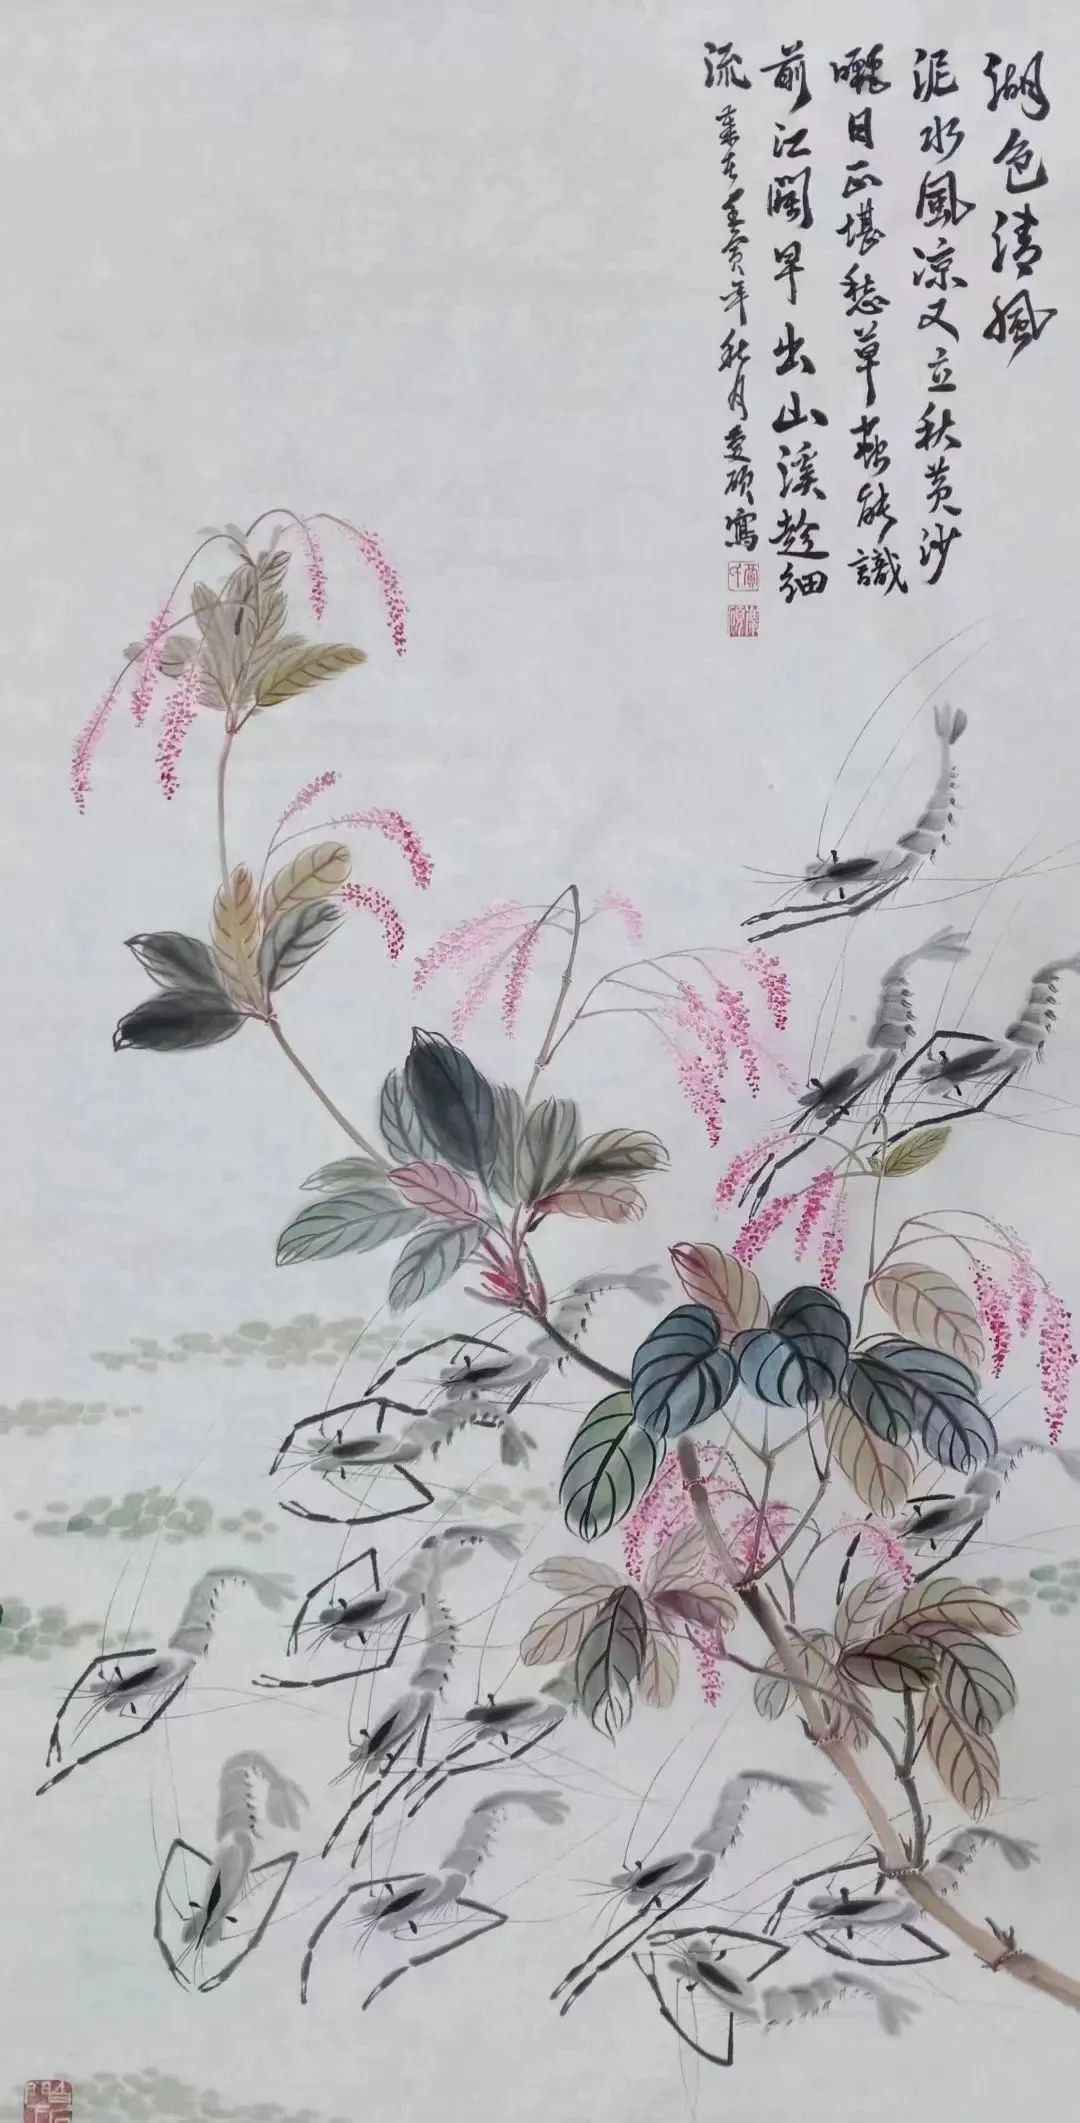 湖色清風
泥水風凉又立秋黄沙
曬日正堪愁草蟲能識
前江闊早出山溪趁細
流 壬寅年秋月 碩寫